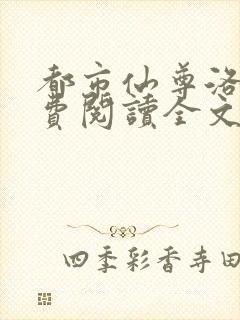 都市仙尊洛
費閱讀全文
四季彩香寺田